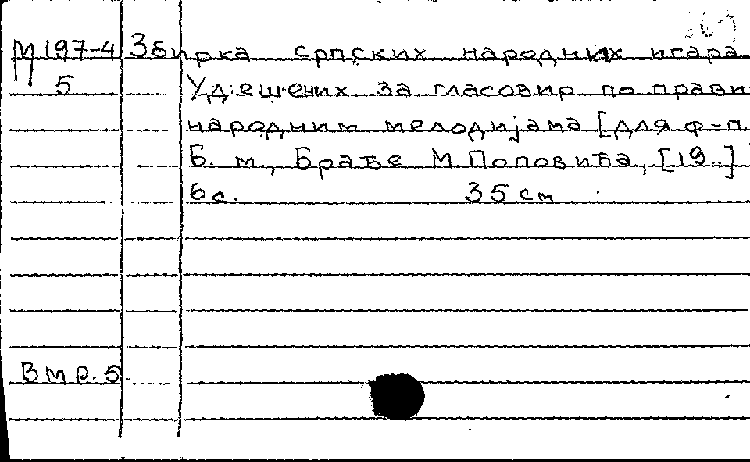 М 197-4 Збирка српских народних игара
5 Удешених за гласовир по прави
народним мелодијама [для ф-п.
Б. м., Браће М. Поповића, [19..]
6 с. 35 см
В м р. 5.